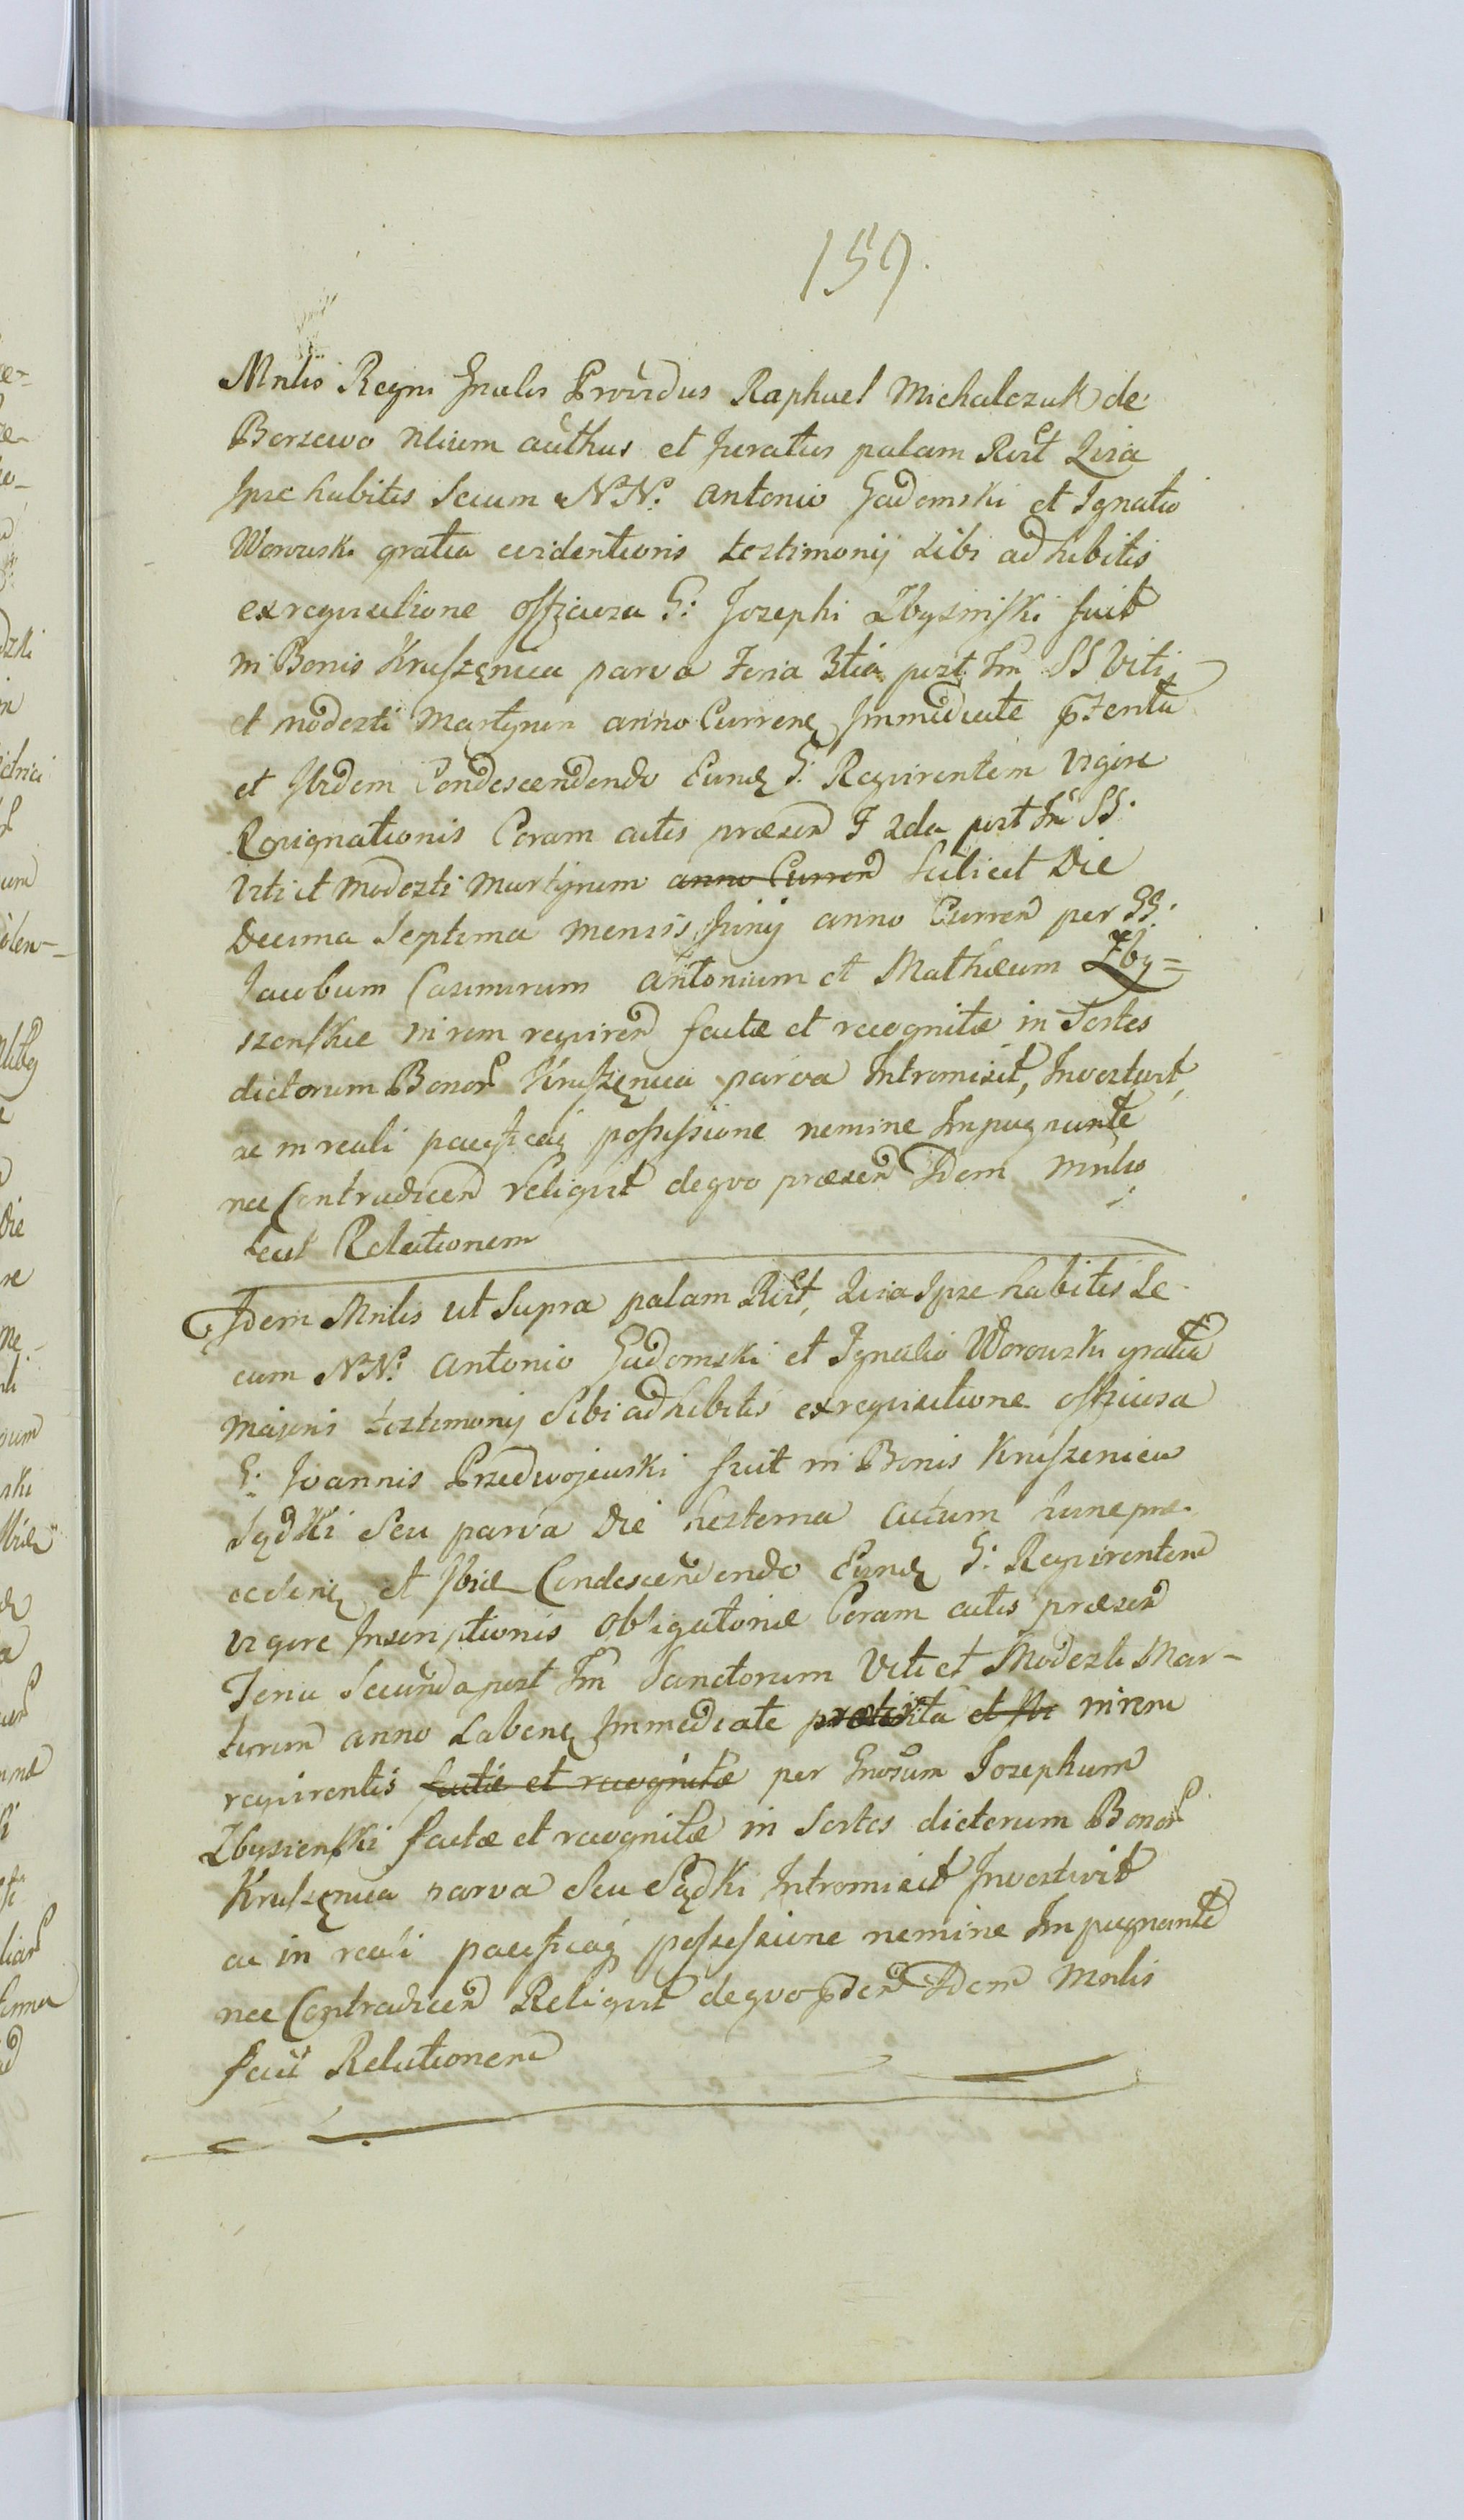 159.
Mnlis Regni Gnalis Providus Raphael Michalczuk de
Borzewo Nlium authus et Juratus palam Rcit Quia
Ipse habitis Secum NN. Antonio Gadomski et Ignatio
Worowski gratia evidentioris testimonij Sibi adhibitis
ex requisitione officiosa G: Josephi Zbysinski fuit
in Bonis Kruszęnica parva Feria 3tia post Fm SS Viti
et Modesti Martyrum anno Curren Immediate pterita
et Ibidem Condescendendo Eund G: Requirentem vigore
Resignationis Coram actis praesen F 2da post Fm SS.
Viti et Modesti Martyrum anno Curren Scilicet Die
Decima Septima Mensis Junij anno Curren per GG.
Jacobum Casimirum Antonium et Mathaeum Zby=
szenskie in rem requiren factae et recognitae in Sortes
dictorum Bonor Kruszęnica parva Intromisit, Investivit,
ac in reali pacificaq possessione nemine Impugnante
nec Contradicen reliquit de quo praesen Idem Mnlis
fecit Relationem
Idem Mnlis ut Supra palam Rcit, Quia Ipse habitis Se
cum NN. Antonio Gadomski et Ignatio Worowski gratia
majoris testimonij Sibi adhibitis ex requisitione officiosa
G: Joannis Przedwojewski fuit in Bonis Kruszenica
Sądki Seu parva Die hesterna actum hunc prae
ceden et Ibid Condescendendo Eund G: Requirentem
vigore Inscriptionis Obligatoriae Coram actis praesen
Feria Secunda post Fm Sanctorum Viti et Modesti Mar-
tirum anno Laben Immediate praeterita et Ibi in rem
requirentis factae et recognitae per Gnosum Josephum
Zbysienski factae et recognitae in Sortes dictorum Bonor
Kruszęnica parva Seu Sądki Intromisit Investivit
ac in reali pacificaq possessione nemine Impugnante
nec Contradicen Reliquit de quo pden Idem Mnlis
fecit Relationem